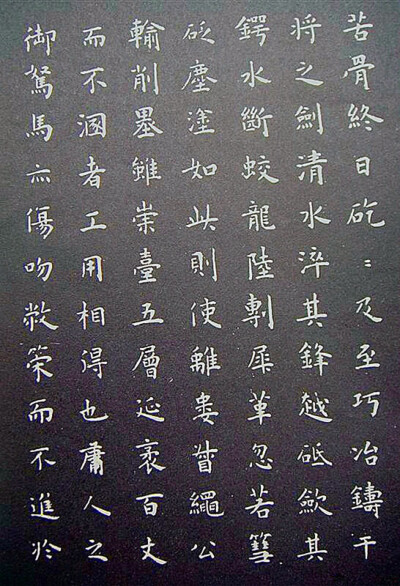 苦骨終日矻〻及至巧冶鑄干
將之劍清水淬其鋒越砥歛其
鍔水斷蛟龍陸剸犀革忽若篲
砭塵塗如此則使離婁督繩公
輸削墨雖崇臺五層延袤百丈
而不溷者工用相得也庸人之
御駑馬亦傷吻敝策而不進於